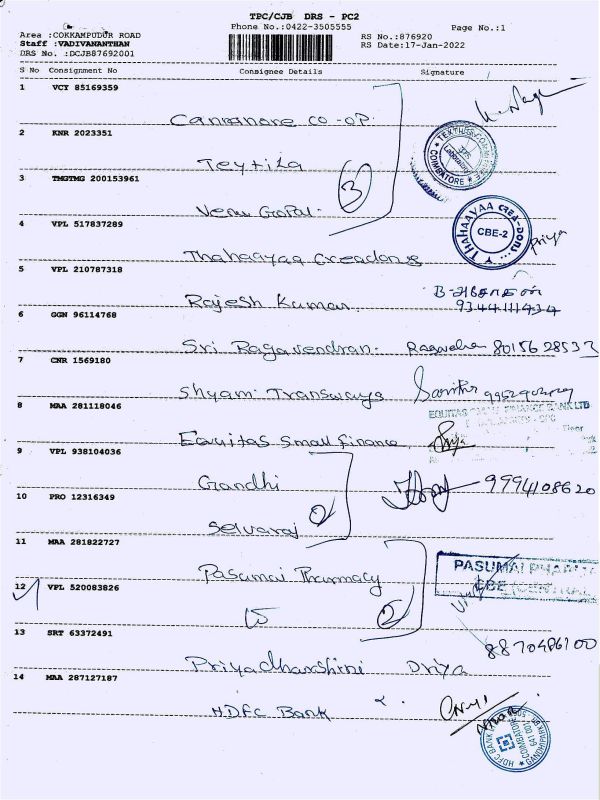 TPC/CJB DRS - PC2
Phone No.:0422-3505555
Page No.:1
Area :COKKAMPUDUR ROAD
Staff :VADIVANANTHAN
DRS No. :DCJB87692001
RS No.:876920
RS Date:17-Jan-2022
S No Consignment No Consignee Details Signature
1 VCY 85169359
Cannanore co-op.
2 KNR 2023351
Teytila
3 TMGTMG 200153961
3
Venu Gopal.
TEXTILES COMMITTEE
Laboratory
COIMBATORE
4 VPL 517837289
Thahaayaa Creadons
THAHAAYAA CREA-DORS
CBE-2
priya
5 VPL 210787318
Rajesh Kumar.
9344111434
6 GGN 96114768
Sri Ragavendran. 8015628537
7 CNR 1569180
Shyam Transways
8 MAA 281118046
Equitas small finance
EQUITAS SMALL FINANCE BANK LTD
Floor
9 VPL 938104036
Gandhi
9994108620
10 PRO 12316349
Selvaraj
2
11 MAA 281822727
Pasumai Pharmacy
PASUMAI PHARMA
CBE (CENTRAL
12 VPL 520083826
15
2
8870486100
13 SRT 63372491
Priyadharshini Driya
14 MAA 287127187
HDFC Bank
HDFC BANK
COIMBATORE
641 001
GANDHIPARK BR.